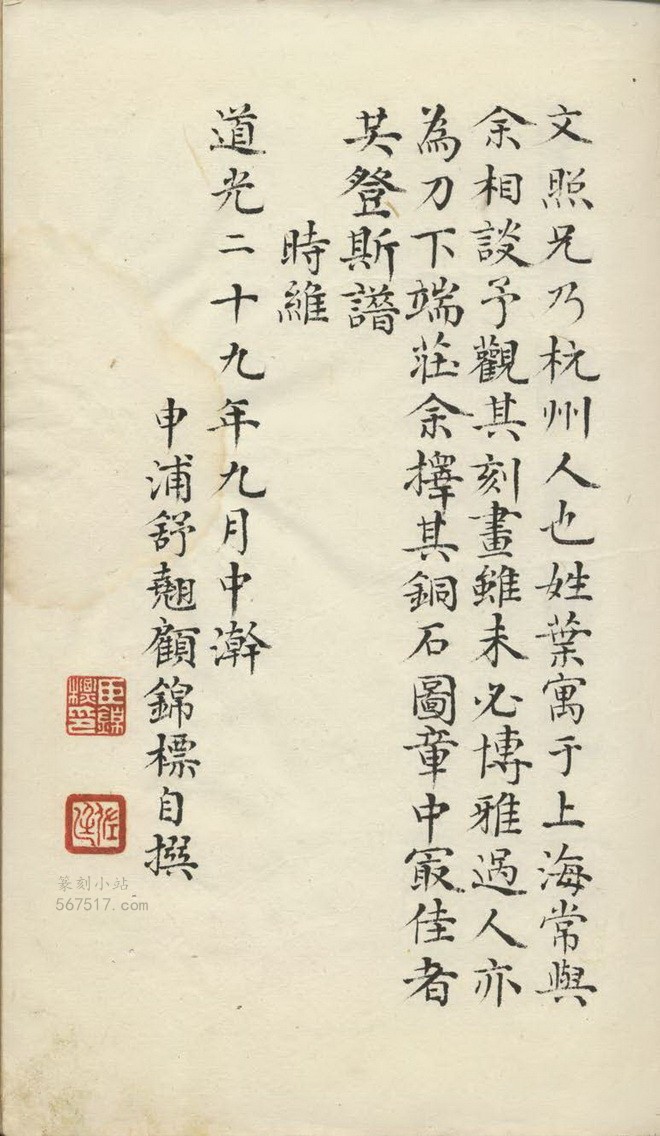 文照兄乃杭州人也姓葉寓于上海常與
余相談予觀其刻畫雖未必博雅過人亦
為刀下端莊余擇其銅石圖章中冣佳者
共登斯譜
時維
道光二十九年九月中澣
申浦舒翹顧錦標自撰
篆刻小站
567517.com